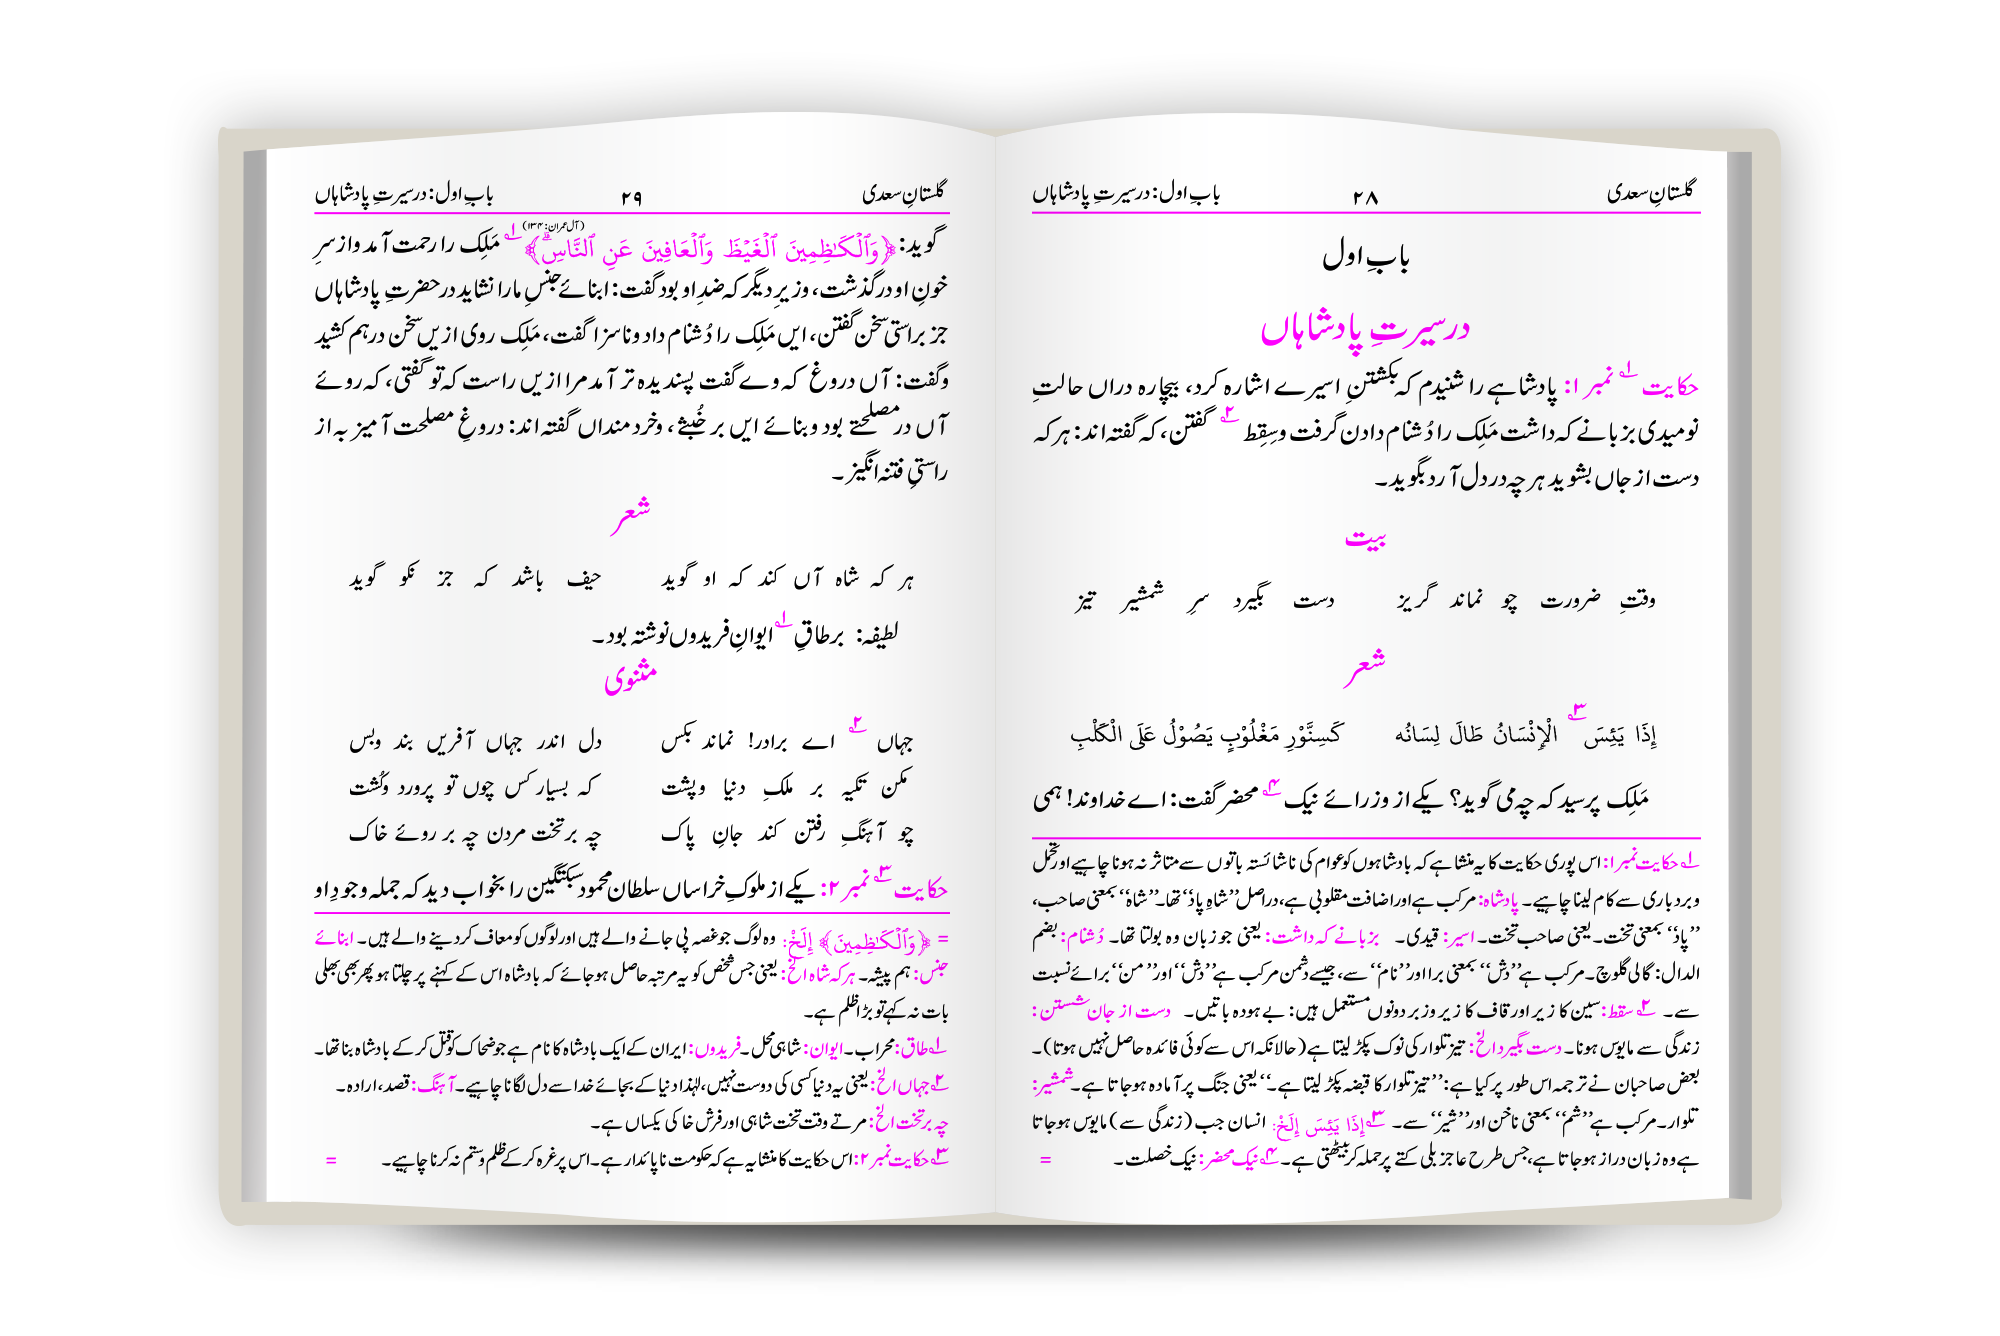 گلستانِ سعدی ۲۸ بابِ اول: در سیرتِ پادشاہاں
بابِ اول
در سیرتِ پادشاہاں
حکایت ۱؎ نمبر ۱: پادشاہے را شنیدم کہ بکشتنِ اسیرے اشارہ کرد، بیچارہ دراں حالتِ
نومیدی بزبانے کہ داشت مَلِک را دُشنام دادن گرفت وسِقِط ۲؎ گفتن، کہ گفتہ اند: ہر کہ
دست از جاں بشوید ہر چہ در دل آرد بگوید۔
بیت
وقتِ ضرورت چو نماند گریز دست بگیرد سرِ شمشیر تیز
شعر
إِذَا يَئِسَ ۳؎ الْإِنْسَانُ طَالَ لِسَانُه كَسِنَّوْرِ مَغْلُوْبٍ يَصُوْلُ عَلَى الْكَلْبِ
مَلِک پرسید کہ چہ می گوید؟ یکے از وزرائے نیک ۴؎ محضر گفت: اے خداوند! ہمی
۱؎ حکایت نمبر ۱: اس پوری حکایت کا یہ منشا ہے کہ بادشاہوں کو عوام کی ناشائستہ باتوں سے متاثر نہ ہونا چاہیے اور تحمل
و بردباری سے کام لینا چاہیے۔ پادشاہ: مرکب ہے اور اضافت مقلوبی ہے، دراصل ’’شاہِ پاد‘‘ تھا۔ ’’شاہ‘‘ بمعنی صاحب،
’’پاد‘‘ بمعنی تخت۔ یعنی صاحب تخت۔ اسیر: قیدی۔ بزبانے کہ داشت: یعنی جو زبان وہ بولتا تھا۔ دُشنام: بضم
الدال: گالی گلوچ۔ مرکب ہے ’’دش‘‘ بمعنی برا اور ’’نام‘‘ سے، جیسے دشمن مرکب ہے ’’دش‘‘ اور ’’من‘‘ برائے نسبت
سے۔ ۲؎ سقط: سین کا زیر اور قاف کا زیر وزبر دونوں مستعمل ہیں: بے ہودہ باتیں۔ دست از جان شستن:
زندگی سے مایوس ہونا۔ دست بگیرد الخ: تیز تلوار کی نوک پکڑ لیتا ہے (حالانکہ اس سے کوئی فائدہ حاصل نہیں ہوتا)۔
بعض صاحبان نے ترجمہ اس طور پر کیا ہے: ’’تیز تلوار کا قبضہ پکڑ لیتا ہے۔‘‘ یعنی جنگ پر آمادہ ہوجاتا ہے۔ شمشیر:
تلوار۔ مرکب ہے ’’شم‘‘ بمعنی ناخن اور ’’شیر‘‘ سے۔ ۳؎ إِذَا يَئِسَ إِلَخْ: انسان جب (زندگی سے) مایوس ہوجاتا
ہے وہ زبان دراز ہوجاتا ہے، جس طرح عاجز بلی کتے پر حملہ کر بیٹھتی ہے۔ ۴؎ نیک محضر: نیک خصلت۔ =
گلستانِ سعدی ۲۹ بابِ اول: در سیرتِ پادشاہاں
گوید: ﴿وَٱلْكَـٰظِمِينَ ٱلْغَيْظَ وَٱلْعَافِينَ عَنِ ٱلنَّاسِ ۗ﴾ (آل عمران: ۱۳۴) ۱؎ مَلِک را رحمت آمد واز سرِ
خونِ او درگذشت، وزیرِ دیگر کہ ضدِ او بود گفت: ابنائے جنسِ ما را نشاید در حضرتِ پادشاہاں
جز براستی سخن گفتن، ایں مَلِک را دُشنام داد وناسزا گفت، مَلِک روی ازیں سخن درہم کشید
وگفت: آں دروغ کہ وے گفت پسندیدہ تر آمد مرا ازیں راست کہ تو گفتی، کہ روئے
آں در مصلحتے بود وبنائے ایں بر خُبثے، وخرد منداں گفتہ اند: دروغِ مصلحت آمیز بہ از
راستیِ فتنہ انگیز۔
شعر
ہر کہ شاہ آں کند کہ او گوید حیف باشد کہ جز نکو گوید
لطیفہ: بر طاقِ ۱؎ ایوانِ فریدوں نوشتہ بود۔
مثنوی
جہاں ۲؎ اے برادر! نماند بکس دل اندر جہاں آفریں بند وبس
مکن تکیہ بر ملکِ دنیا وپشت کہ بسیار کس چوں تو پرورد وکُشت
چو آہنگِ رفتن کند جانِ پاک چہ بر تخت مردن چہ بر روئے خاک
حکایت ۳؎ نمبر ۲: یکے از ملوکِ خراساں سلطان محمود سبکتگین را بخواب دید کہ جملہ وجودِ او
= ﴿وَٱلْكَـٰظِمِينَ﴾ إِلَخْ: وہ لوگ جو غصہ پی جانے والے ہیں اور لوگوں کو معاف کر دینے والے ہیں۔ ابنائے
جنس: ہم پیشہ۔ ہر کہ شاہ الخ: یعنی جس شخص کو یہ مرتبہ حاصل ہوجائے کہ بادشاہ اس کے کہنے پر چلتا ہو پھر بھی بھلی
بات نہ کہے تو بڑا ظلم ہے۔
۱؎ طاق: محراب۔ ایوان: شاہی محل۔ فریدوں: ایران کے ایک بادشاہ کا نام ہے جو ضحاک کو قتل کر کے بادشاہ بنا تھا۔
۲؎ جہاں الخ: یعنی یہ دنیا کسی کی دوست نہیں، لہٰذا دنیا کے بجائے خدا سے دل لگانا چاہیے۔ آہنگ: قصد، ارادہ۔
چہ بر تخت الخ: مرتے وقت تخت شاہی اور فرش خاکی یکساں ہے۔
۳؎ حکایت نمبر ۲: اس حکایت کا منشا یہ ہے کہ حکومت ناپائدار ہے۔ اس پر غرہ کر کے ظلم وستم نہ کرنا چاہیے۔ =